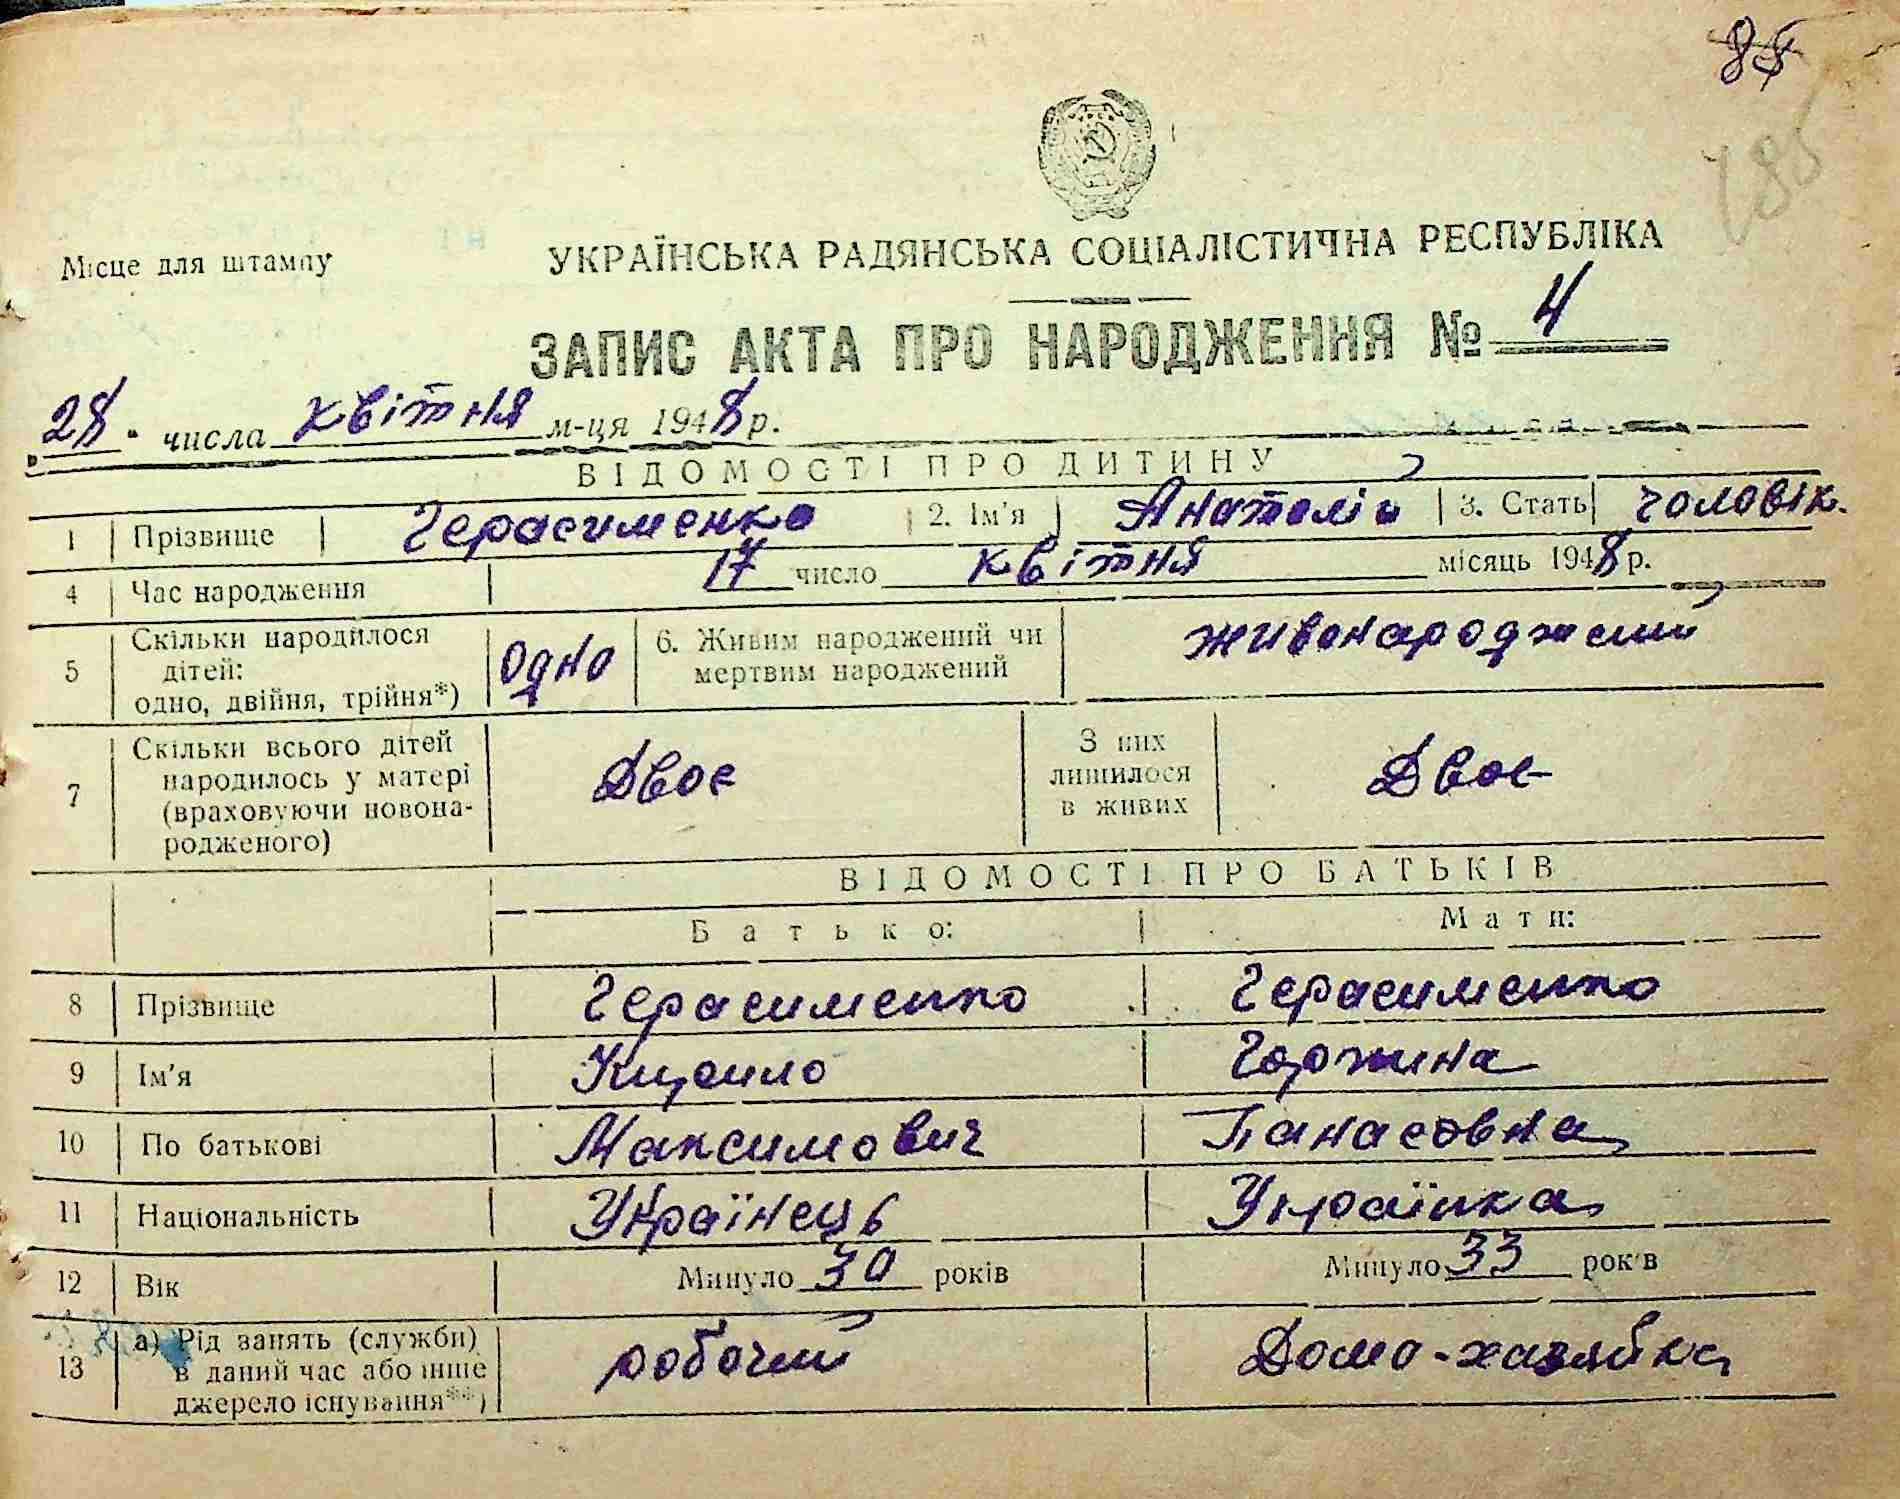 85
185
Місце для штампу
УКРАЇНСЬКА РАДЯНСЬКА СОЦІАЛІСТИЧНА РЕСПУБЛІКА
ЗАПИС АКТА ПРО НАРОДЖЕННЯ № 4
"28" числа квітня м-ця 1948 р.
ВІДОМОСТІ ПРО ДИТИНУ
1 Прізвище Герасименко 2. Ім'я Анатолій 3. Стать чоловік.
4 Час народження 17 число квітня місяць 1948 р.
5 Скільки народилося дітей: одно, двійня, трійня*) Одно 6. Живим народжений чи мертвим народжений живонароджений
7 Скільки всього дітей народилось у матері (враховуючи новонародженого) Двоє З них лишилося в живих Двоє
ВІДОМОСТІ ПРО БАТЬКІВ
Батько: Мати:
8 Прізвище Герасименко Герасименко
9 Ім'я Кирило Горпина
10 По батькові Максимович Панасовна
11 Національність Українець Українка
12 Вік Минуло 30 років Минуло 33 років
13 а) Рід занять (служби) в даний час або інше джерело існування**) робочий Домо-хазяйка